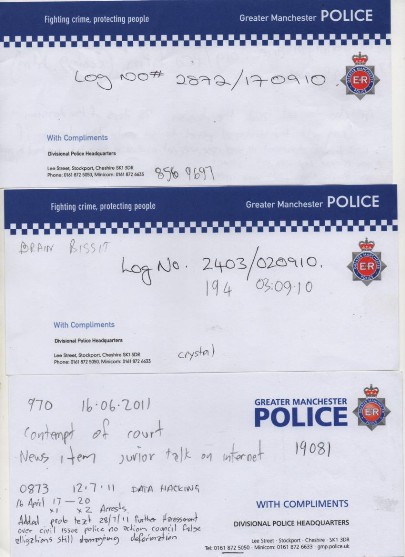 Fighting crime, protecting people
Greater Manchester POLICE
Log NO# 2872/170910.
With Compliments
Divisional Police Headquarters
Lee Street, Stockport, Cheshire SK1 3DR
Phone: 0161 872 5050, Minicom: 0161 872 6633
856 9697
Fighting crime, protecting people
Greater Manchester POLICE
BRAIN BISSIT
Log No. 2403/020910.
194 03.09.10
With Compliments
Divisional Police Headquarters
Lee Street, Stockport, Cheshire SK1 3DR
Phone: 0161 872 5050, Minicom: 0161 872 6633
crystal
970 16.06.2011
GREATER MANCHESTER
POLICE
Contempt of court
News item junior talk on internet
19081
0873 12.7.11 DATA HACKING
16 April 17-20
x1 x2 Arrests
Added prob text 28/7/11 further harassment
over civil issue police no action council false
aligations still damaging defarmation
WITH COMPLIMENTS
DIVISIONAL POLICE HEADQUARTERS
Lee Street · Stockport · Cheshire SK1 3DR
Tel: 0161 872 5050 · Minicom: 0161 872 6633 gmp.police.uk